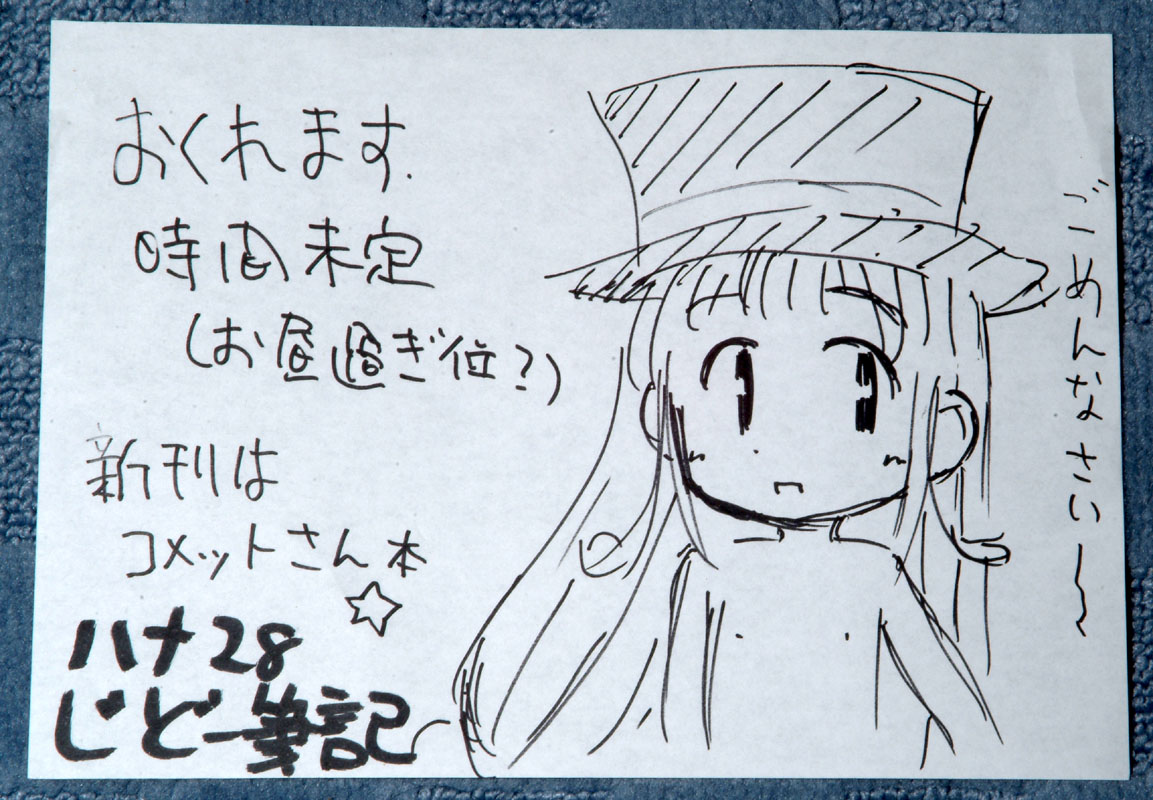 おくれます.
時間未定
(お昼過ぎ位?)
新刊は
コメットさん本
ハナ28
じどー筆記
ごめんなさい〜